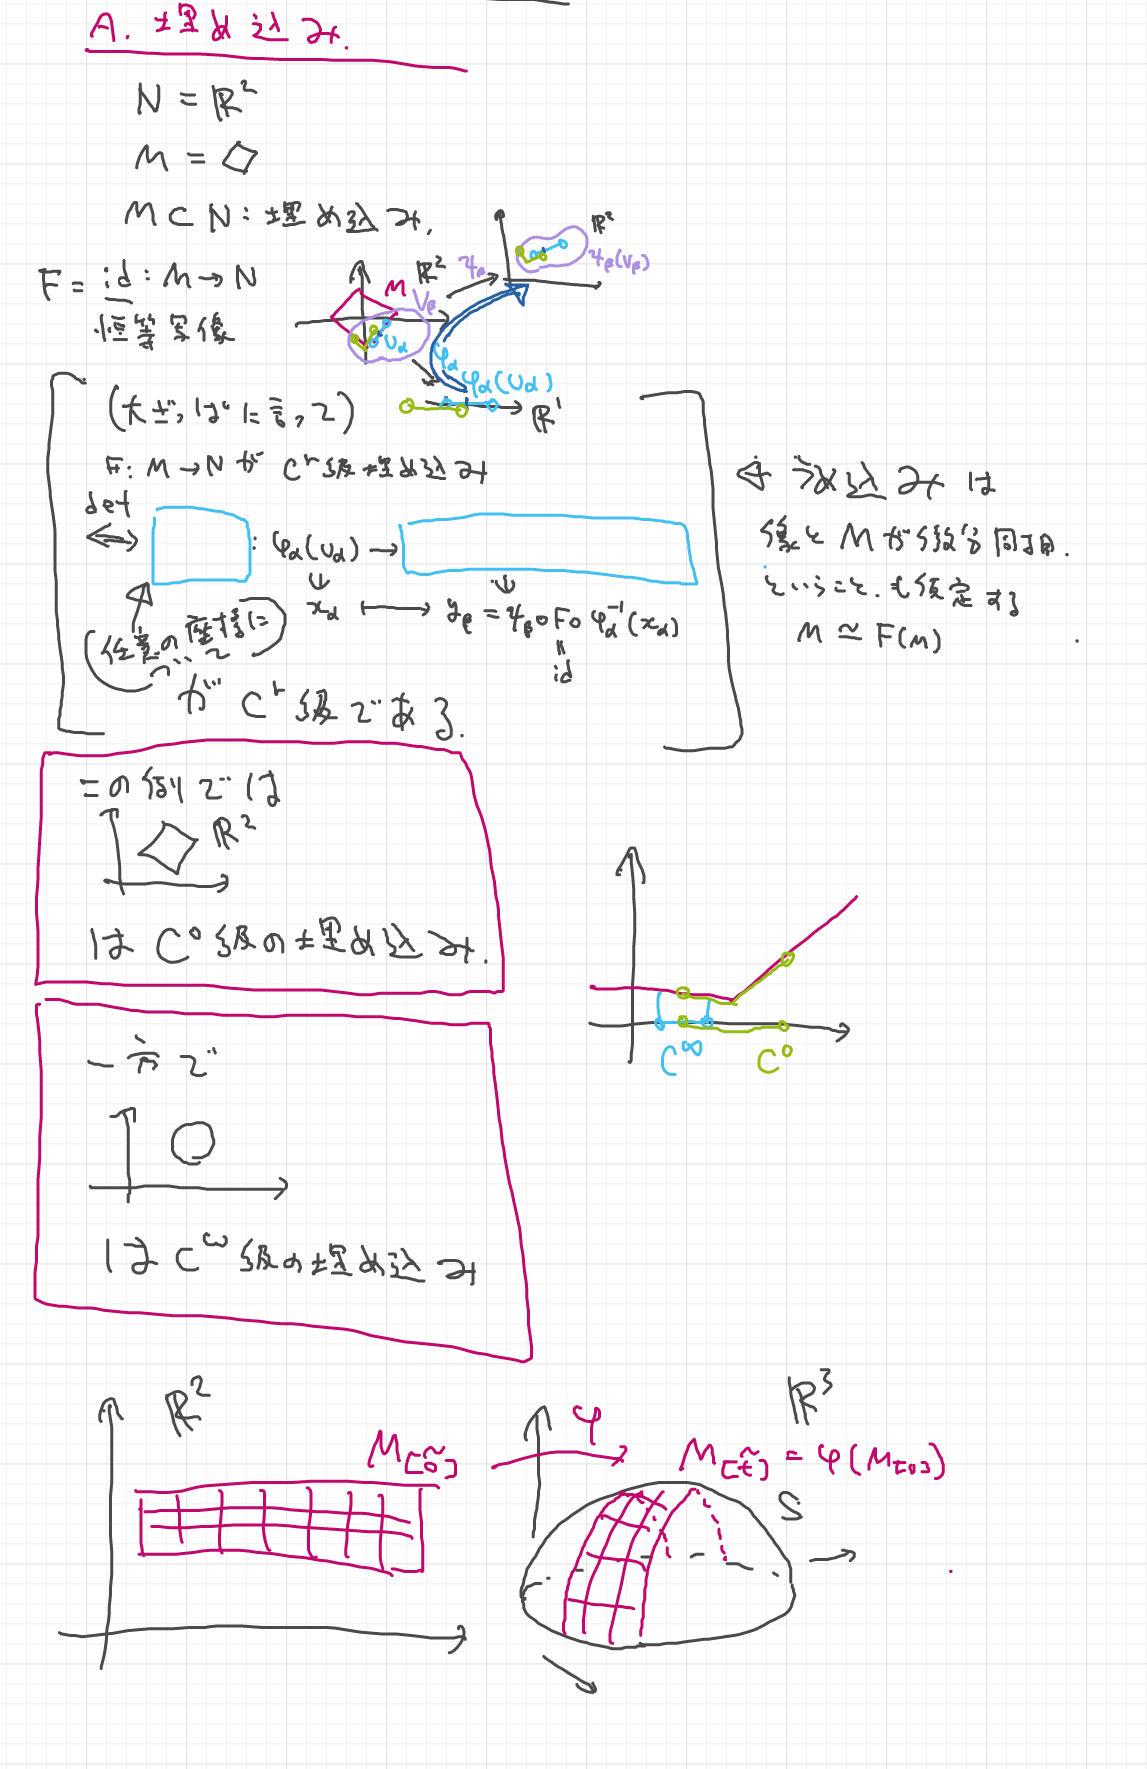 A. 埋め込み.
N = ℝ²
M = ◇
M ⊂ N : 埋め込み.
F = id : M → N
恒等写像
ℝ²
M
V_β
U_α
ψ_β
ℝ²
ψ_β(V_β)
φ_α
φ_α(U_α)
ℝ¹
(大ざっぱに言って)
F: M → N が C^r 級埋め込み
def
⇔
: φ_α(U_α) →
x_α ⟼ y_β = ψ_β∘F∘φ_α⁻¹(x_α)
id
(任意の座標について)
が C^r 級である.
埋め込みは
像と M が微分同相.
ということも仮定する
M ≃ F(M)
この例では
ℝ²
は C⁰ 級の埋め込み.
C^∞
C⁰
一方で
は C^ω 級の埋め込み
ℝ²
M_[õ]
φ
ℝ³
M_[t̃] = φ(M_[0])
S